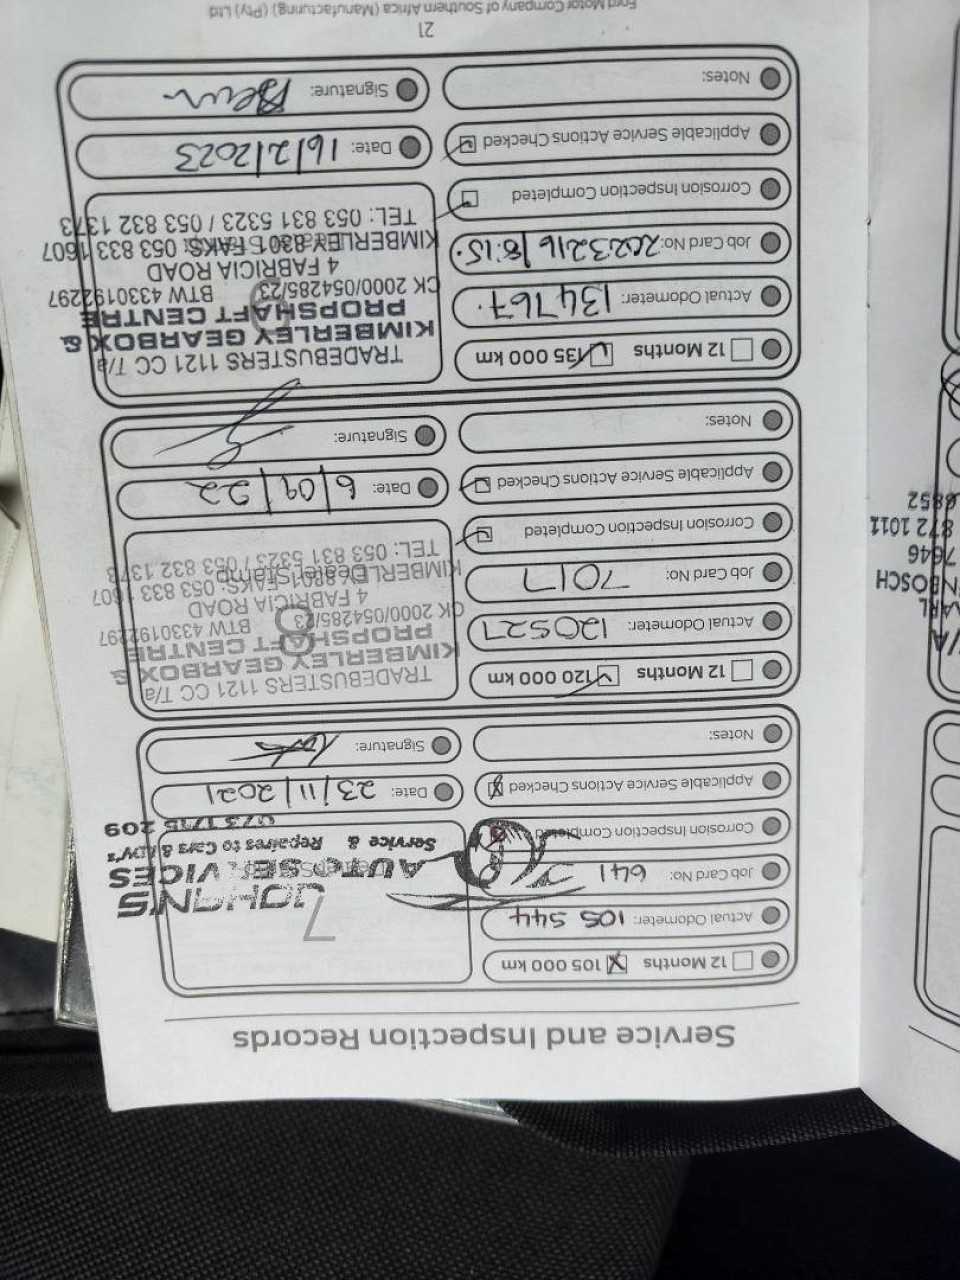 Service and Inspection Records
12 Months
105 000 km
Actual Odometer: 105 544
Job Card No: 641
Corrosion Inspection Completed
Applicable Service Actions Checked
Notes:
7
JOHAN'S
AUTO SERVICES
Service & Repaires to Cars & LDV's
073 1715 209
Date: 23/11/2021
Signature:
12 Months
120 000 km
Actual Odometer: 120527
Job Card No: 7017
Corrosion Inspection Completed
Applicable Service Actions Checked
Notes:
8
Dealer Stamp
TRADEBUSTERS 1121 CC T/a
KIMBERLEY GEARBOX &
PROPSHAFT CENTRE
CK 2000/054285/23 BTW 4330192297
4 FABRICIA ROAD
KIMBERLEY 8301 FAKS: 053 833 1607
TEL: 053 831 5323 / 053 832 1373
Date: 6/09/22
Signature:
12 Months
135 000 km
Actual Odometer: 134767.
Job Card No: 2023216/8:15.
Corrosion Inspection Completed
Applicable Service Actions Checked
Notes:
9
TRADEBUSTERS 1121 CC T/a
KIMBERLEY GEARBOX &
PROPSHAFT CENTRE
CK 2000/054285/23 BTW 4330192297
4 FABRICIA ROAD
KIMBERLEY 8301 FAKS: 053 833 1607
TEL: 053 831 5323 / 053 832 1373
Date: 16/2/2023
Signature:
21
Ford Motor Company of Southern Africa (Manufacturing) (Pty) Ltd
T/A
ARL
NBOSCH
7646
872 1011
6852